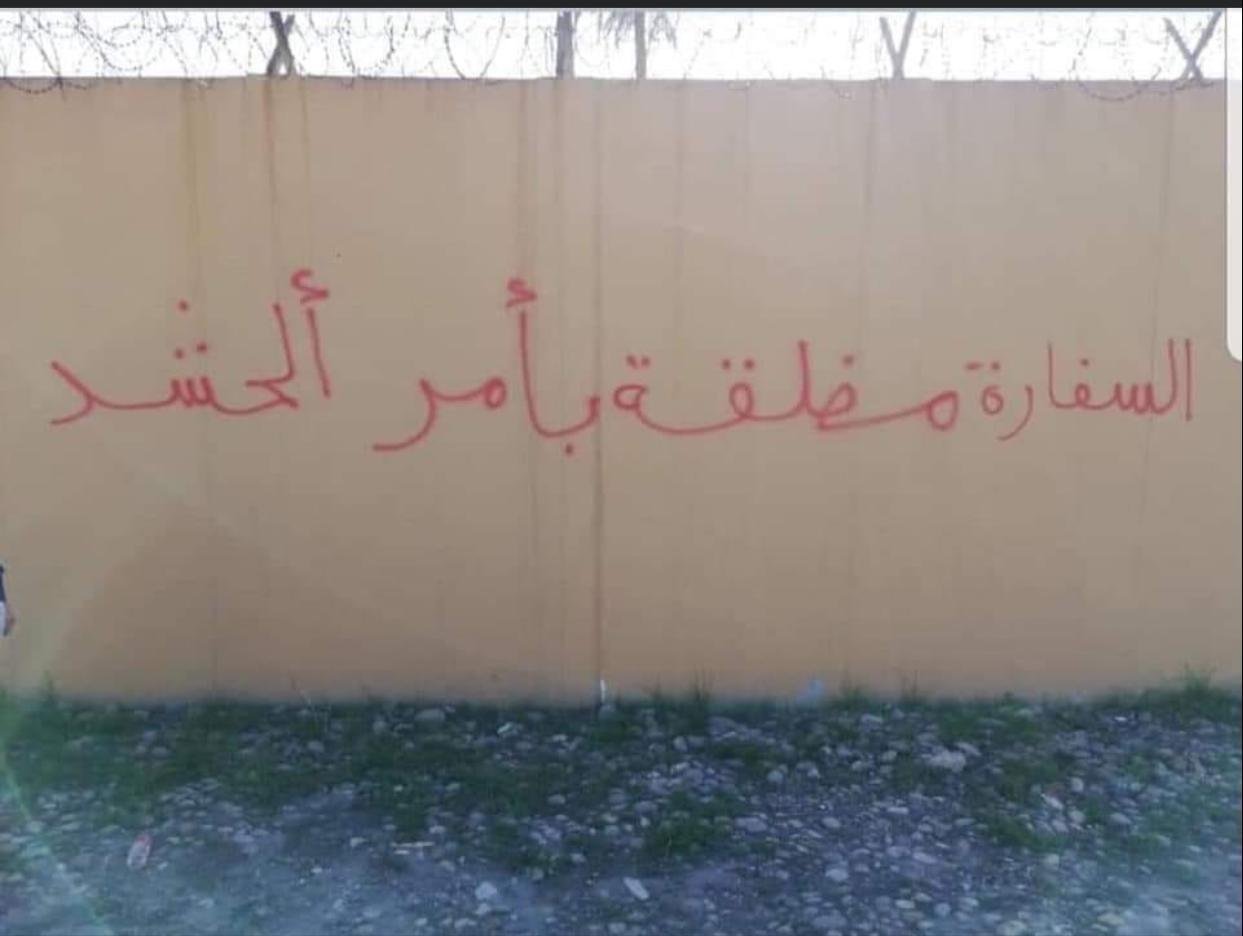 السفارة مغلقة بأمر ألحشد